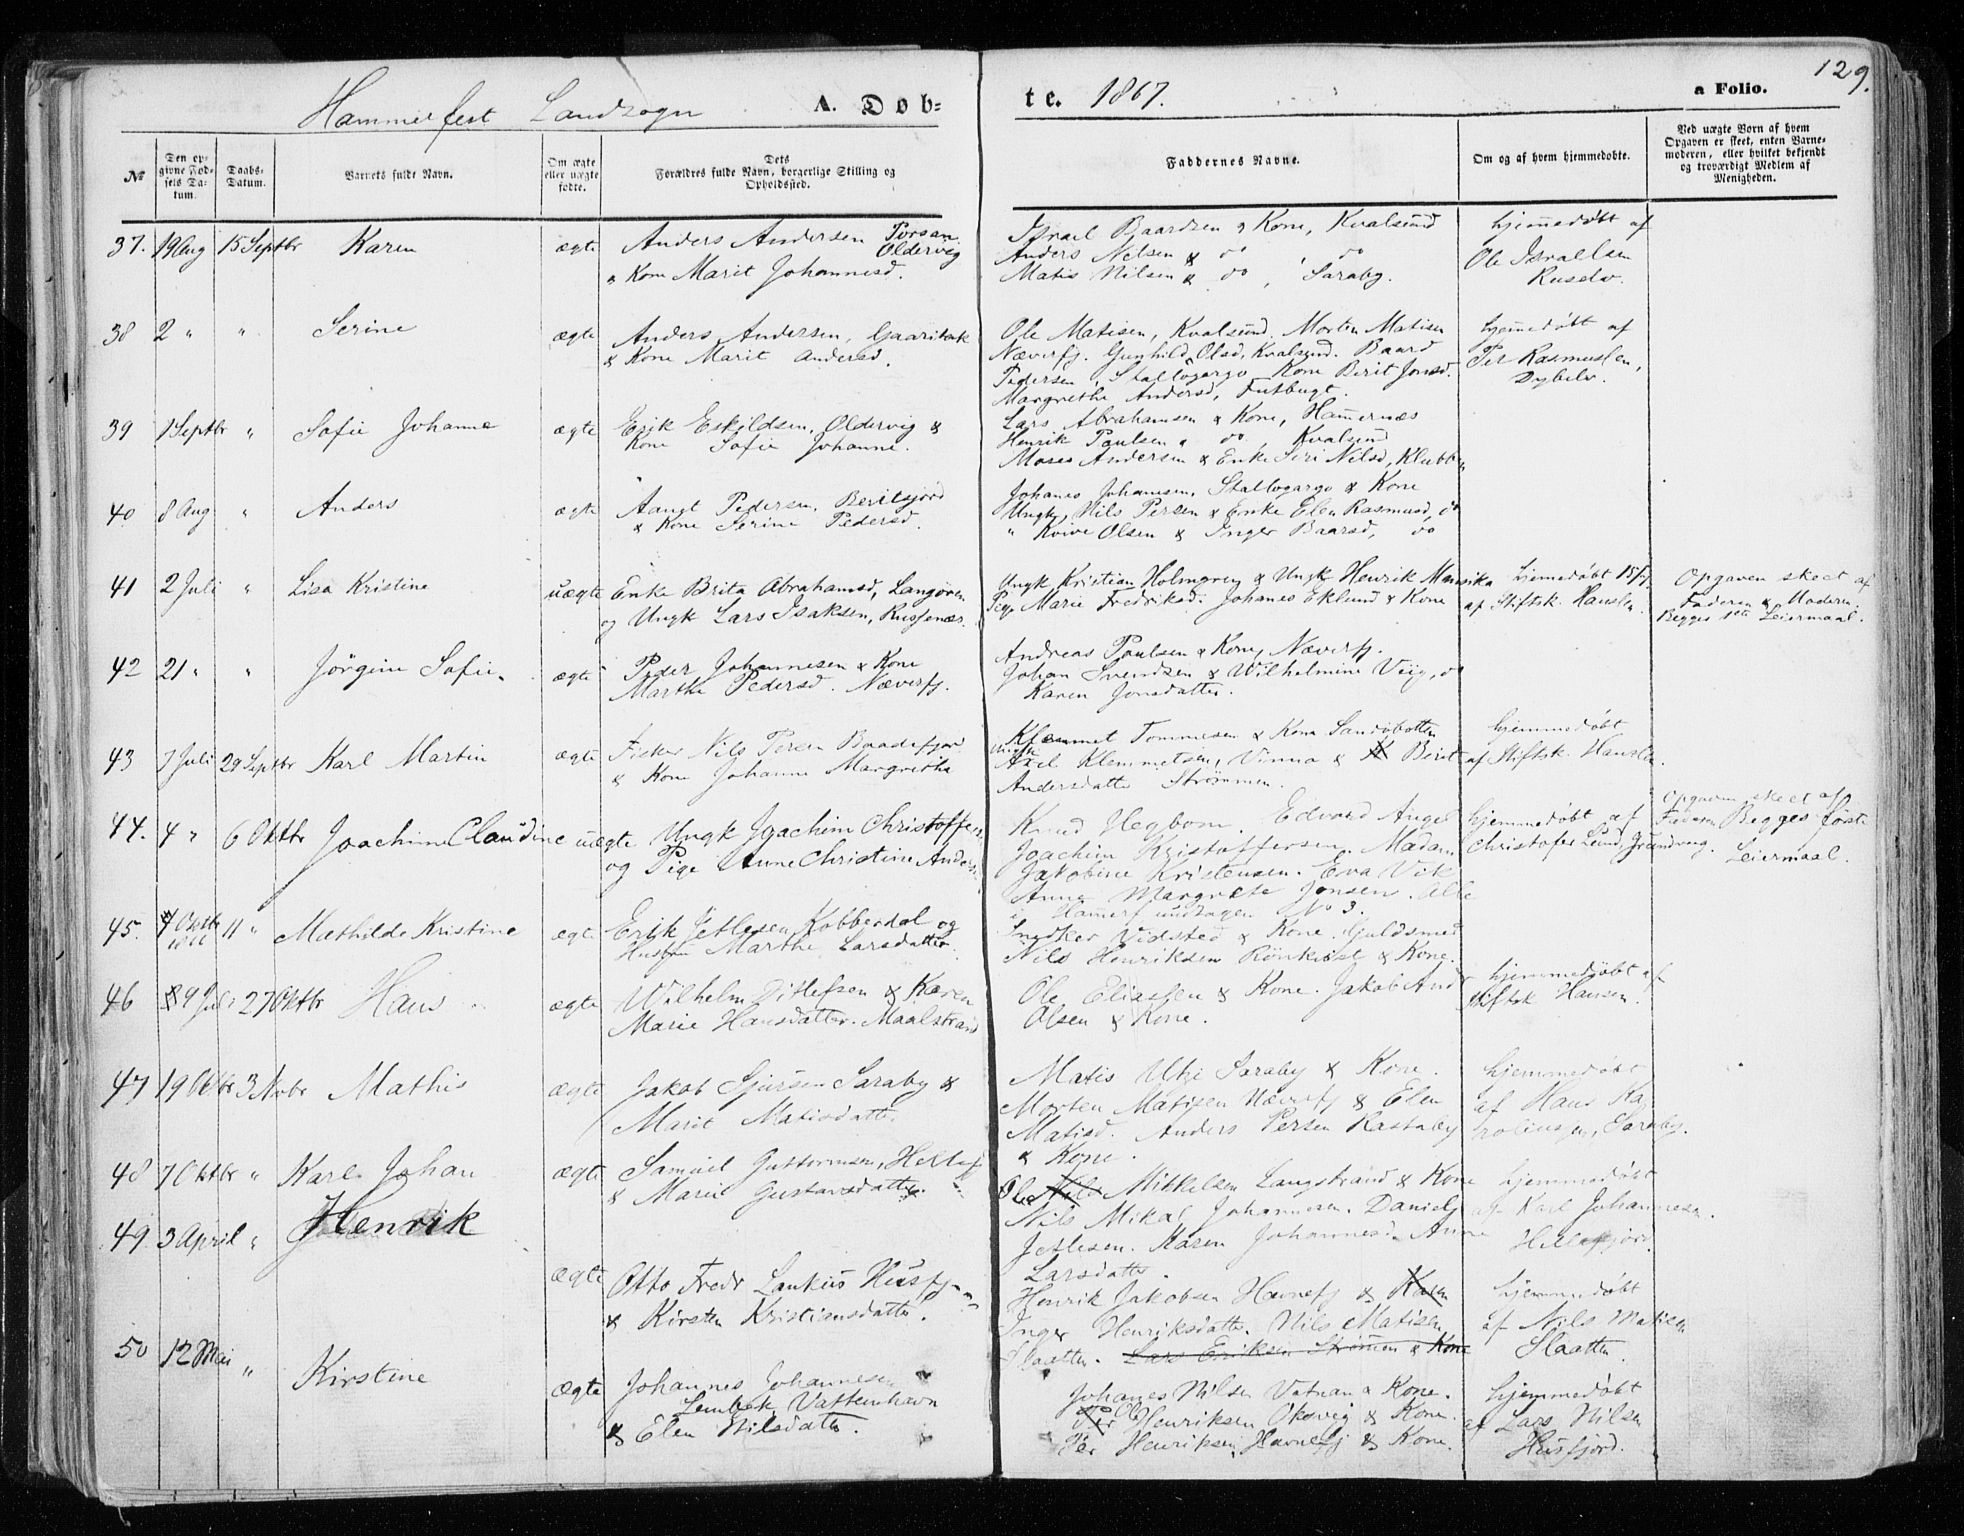 Hammerfest Landsogn A. Dob- te. 1867. a Folio. 129.
№
Den opgivne Fødsels Datum.
Daabs-Datum.
Barnets fulde Navn.
Om ægte eller uægte fødte.
Dets Forældres fulde Navn, borgerlige Stilling og Opholdssted.
Faddernes Navne.
Om og af hvem hjemmedøbt.
Ved uægte Børn af hvem Opgaven er skeet, enten Barnemoderen, eller hvilket bekjendt og troværdigt Medlem af Menigheden.
37. 19 Aug 15 Septbr Karen ægte
Anders Andersen Porsan. Oldervig
& Kone Marit Johannesd.
Israel Baardsen & Kone, Kvalsund
Anders Nelsen & do, do
Matis Nilsen & do, Saraby.
hjemmedøbt af
Ole Israelsen
Ruselv.
38 2 " " Serine ægte
Anders Andersen,
& Kone Marit Andersd.
Ole Matisen, Kvalsund, Morten Matisen
Næverfj. Gunhild Olsd, Kvalsund. Baard
Pedersen, Stallogargo Kone Berit Jonsd.
Margrethe Andersd,
hjemmedøbt af
Per Rasmussen,
Dybelv.
39 1 Septbr " Sofie Johanne ægte
Erik Eskildsen, Oldervig &
Kone Sofie Johanne.
Lars Abrahamsen & Kone, Hamernæs
Henrik Paulsen & do, Kvalsund
Moses Andersen & Enke Siri Nilsd, Klubben
40 8 Aug " Anders ægte
Pedersen,
& Kone Serine Pedersd.
Johanes Johanesen, Stallogargo & Kone
Ungk, Nils Persen & Enke Elen Rasmusd, do
" Olsen & Inger Baarsd, do
41 2 Juli " Lisa Kristine uægte
Enke Brita Abrahamsd, Langøren
og Ungk Lars Isaksen,
Ungk Kristian Holmgren & Ungk Henrik
Pige Marie Fredriksd. Johanes Eklund & Kone
hjemedøbt 15/7
af Stiftsk. Hansen.
Opgaven skeet af
Faderen & Moderen.
Begges 1ste Leiermaal.
42 21 " " Jörgine Sofie. ægte
Peder Johannesen & Kone
Marthe Pedersd. Næverfj.
Andreas Paulsen & Kone, Næverfj.
Johan Svendsen & Wilhelmine Viig, do
Karen Jonsdatter.
43 7 Juli 29 Septbr Karl Martin ægte
Fisker Nils Persen
& Kone Johanne Margrethe
Klemmet Tommesen & Kone Sandøbotten
Ungk Axel Klemmetsen, Vinna & Berit
Andersdatter Strømmen.
hjemmedøbt
af Stiftsk. Hansen.
44. 4 " 6 Oktbr Joachine Claudine uægte
Ungk Joachim Christoffersen
og Pige Anne Christine Anders
Knud Hegbom. Edvard Angel
Joachim Kristoffersen. Madam
Jakobine Kristensen. Eva Vik
Anne Margrete Jensen. Alle
i Hamerf undtagen No 3.
hjemmedøbt af
Christofer Lund,
Opgaven skeet af
Faderen Begges første
Leiermaal.
45. 4 Oktbr 1866 11 " Mathilde Kristine ægte
Erik Jetlesen Kobberdal og
Hustru Marthe Larsdatter.
Snedker Vidsted & Kone. Guldsmed
Nils Henriksen Rönkvist & Kone.
46 9 Juli 27 Oktbr Hans ægte
Wilhelm Ditlefsen & Karen
Marie Hansdatter. Maalstrand
Ole Eliassen & Kone. Jakob And
Olsen & Kone.
hjemmedøbt af
Stiftsk Hansen.
47 19 Oktbr 3 Novbr Mathis ægte
Jakob Sjursen Saraby &
Marit Matisdatter.
Matis Utzi Saraby & Kone.
Morten Matisen Næverfj & Elen
Matisd. Anders Persen Kastaby
& Kone.
hjemmedøbt
af Hans Ka
rolinssen, Saraby.
48 7 Oktbr " Karl Johan ægte
Samuel Guttormsen, Hellefj
& Marie Gustavsdatter.
Ole Mikkelsen Langstrand & Kone
Nils Mikal Johannesen. Daniel
Jetlesen. Karen Johannesd. Anne
Larsdatter.
hjemmedøbt
af Karl Johannesen.
Hellefjord.
49. 3 April " Henrik ægte
Otto Fredr Lankus Husfj
& Kirsten Kristiansdatter.
Henrik Jakobsen Havnefj & Karen
Inger Henriksdatter. Nils Matisen
Slaatten. Lars Eriksen Strømmen & Kone
hjemmedøbt
af Nils Matisen
Slaatten.
50 12 Mai " Kirstine ægte
Johannes Johannesen
Lembek, Vattenhavn
& Elen Nilsdatter.
Johanes Nilsen Vatnan & Kone.
Ole Henriksen Oksvig & Kone.
Per Henriksen, Havnefj & Kone.
hjemmedøbt
af Lars Nilsen
Husfjord.